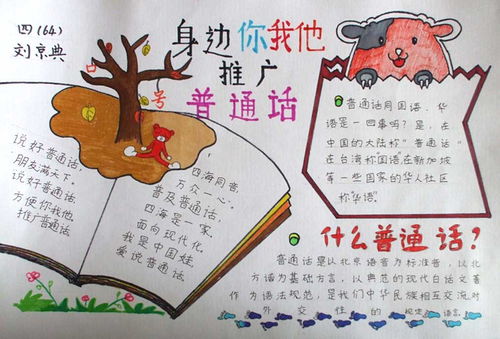 四(64)
刘京典
身边你我他
推广
普通话
口号
说好普通话,
朋友满天下。
说好普通话
方便你我他
推广普通话
四海同音
万众一心。
普及普通话,
四海是一家
面向现代化。
我是中国娃。
爱说普通话
普通话同国语、华
语是一回事吗?是,在
中国的大陆称"普通话"
在台湾称国语在新加坡
等一些国家的华人社区
称"华语"
什么普通话?
普通话是以北京语音为标准音,以北
方话为基础方言,以典范的现代白话文著
作为语法规范,是我们中华民族相互交流对
外交往的规定语言